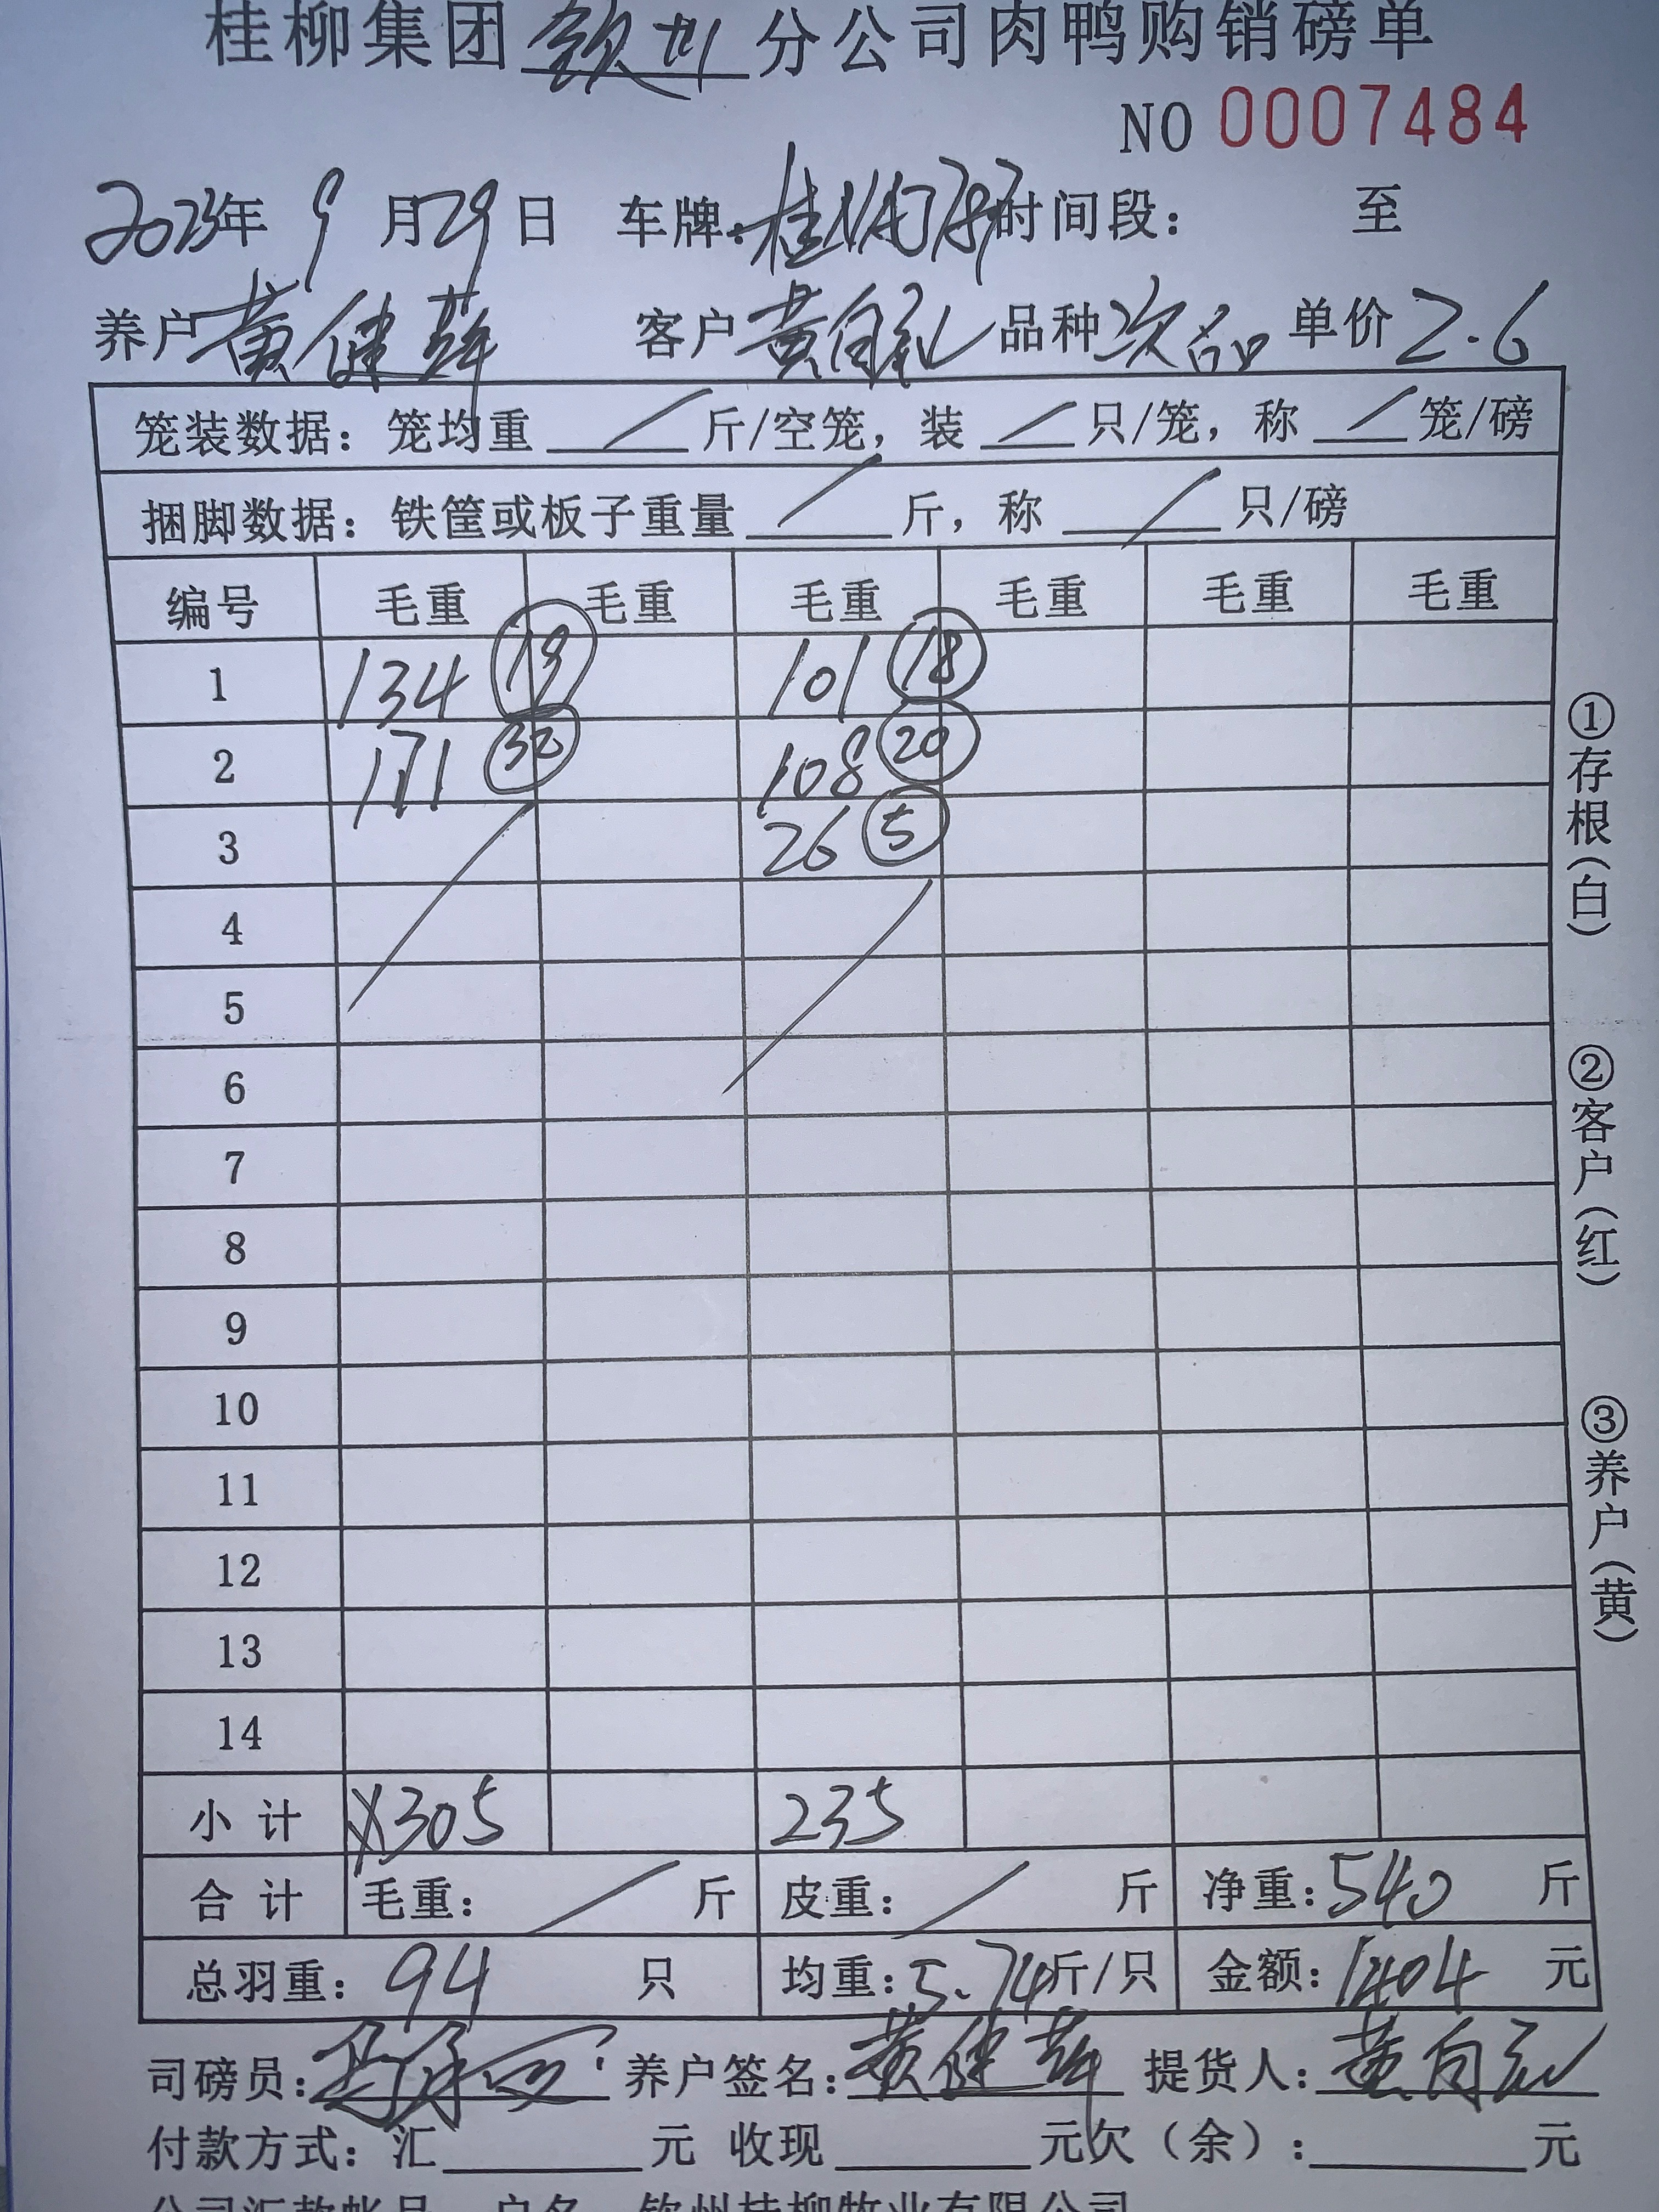 桂柳集团钦州分公司肉鸭购销磅单
NO 0007484
2023年 9月29日 车牌:桂 时间段: 至
养户黄健 客户黄自 品种次品 单价2.6
笼装数据:笼均重 / 斤/空笼,装 / 只/笼,称 / 笼/磅
捆脚数据:铁筐或板子重量 / 斤,称 / 只/磅
编号 毛重 毛重 毛重 毛重 毛重 毛重
1 134 19 101 18
2 171 32 108 20
3 26 5
4
5
6
7
8
9
10
11
12
13
14
小计 305 235
合计 毛重: / 斤 皮重: / 斤 净重:540 斤
总羽重:94 只 均重:5.74斤/只 金额:1404 元
司磅员: 养户签名:黄健 提货人:黄自
付款方式:汇 元 收现 元欠(余): 元
公司汇款帐号 户名 钦州桂柳牧业有限公司
①存根(白)
②客户(红)
③养户(黄)